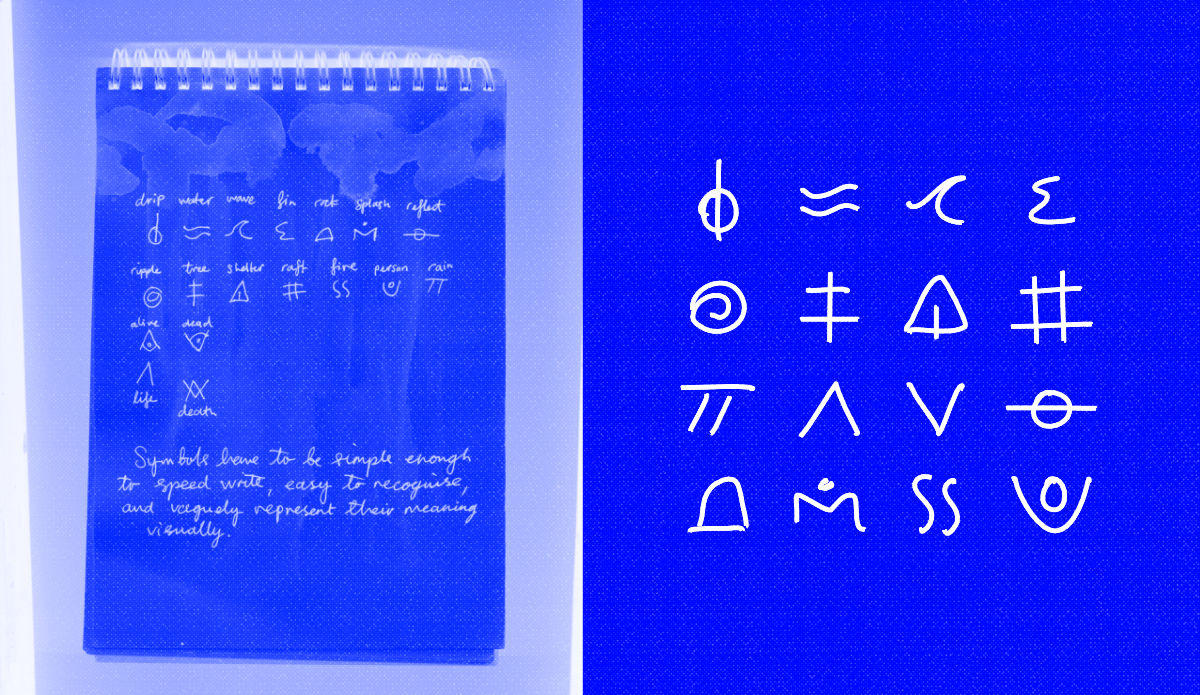 drip water wave fin rock splash reflect
ripple tree shelter raft fire person rain
alive dead
life
death
Symbols have to be simple enough
to speed write, easy to recognise,
and vaguely represent their meaning
visually.